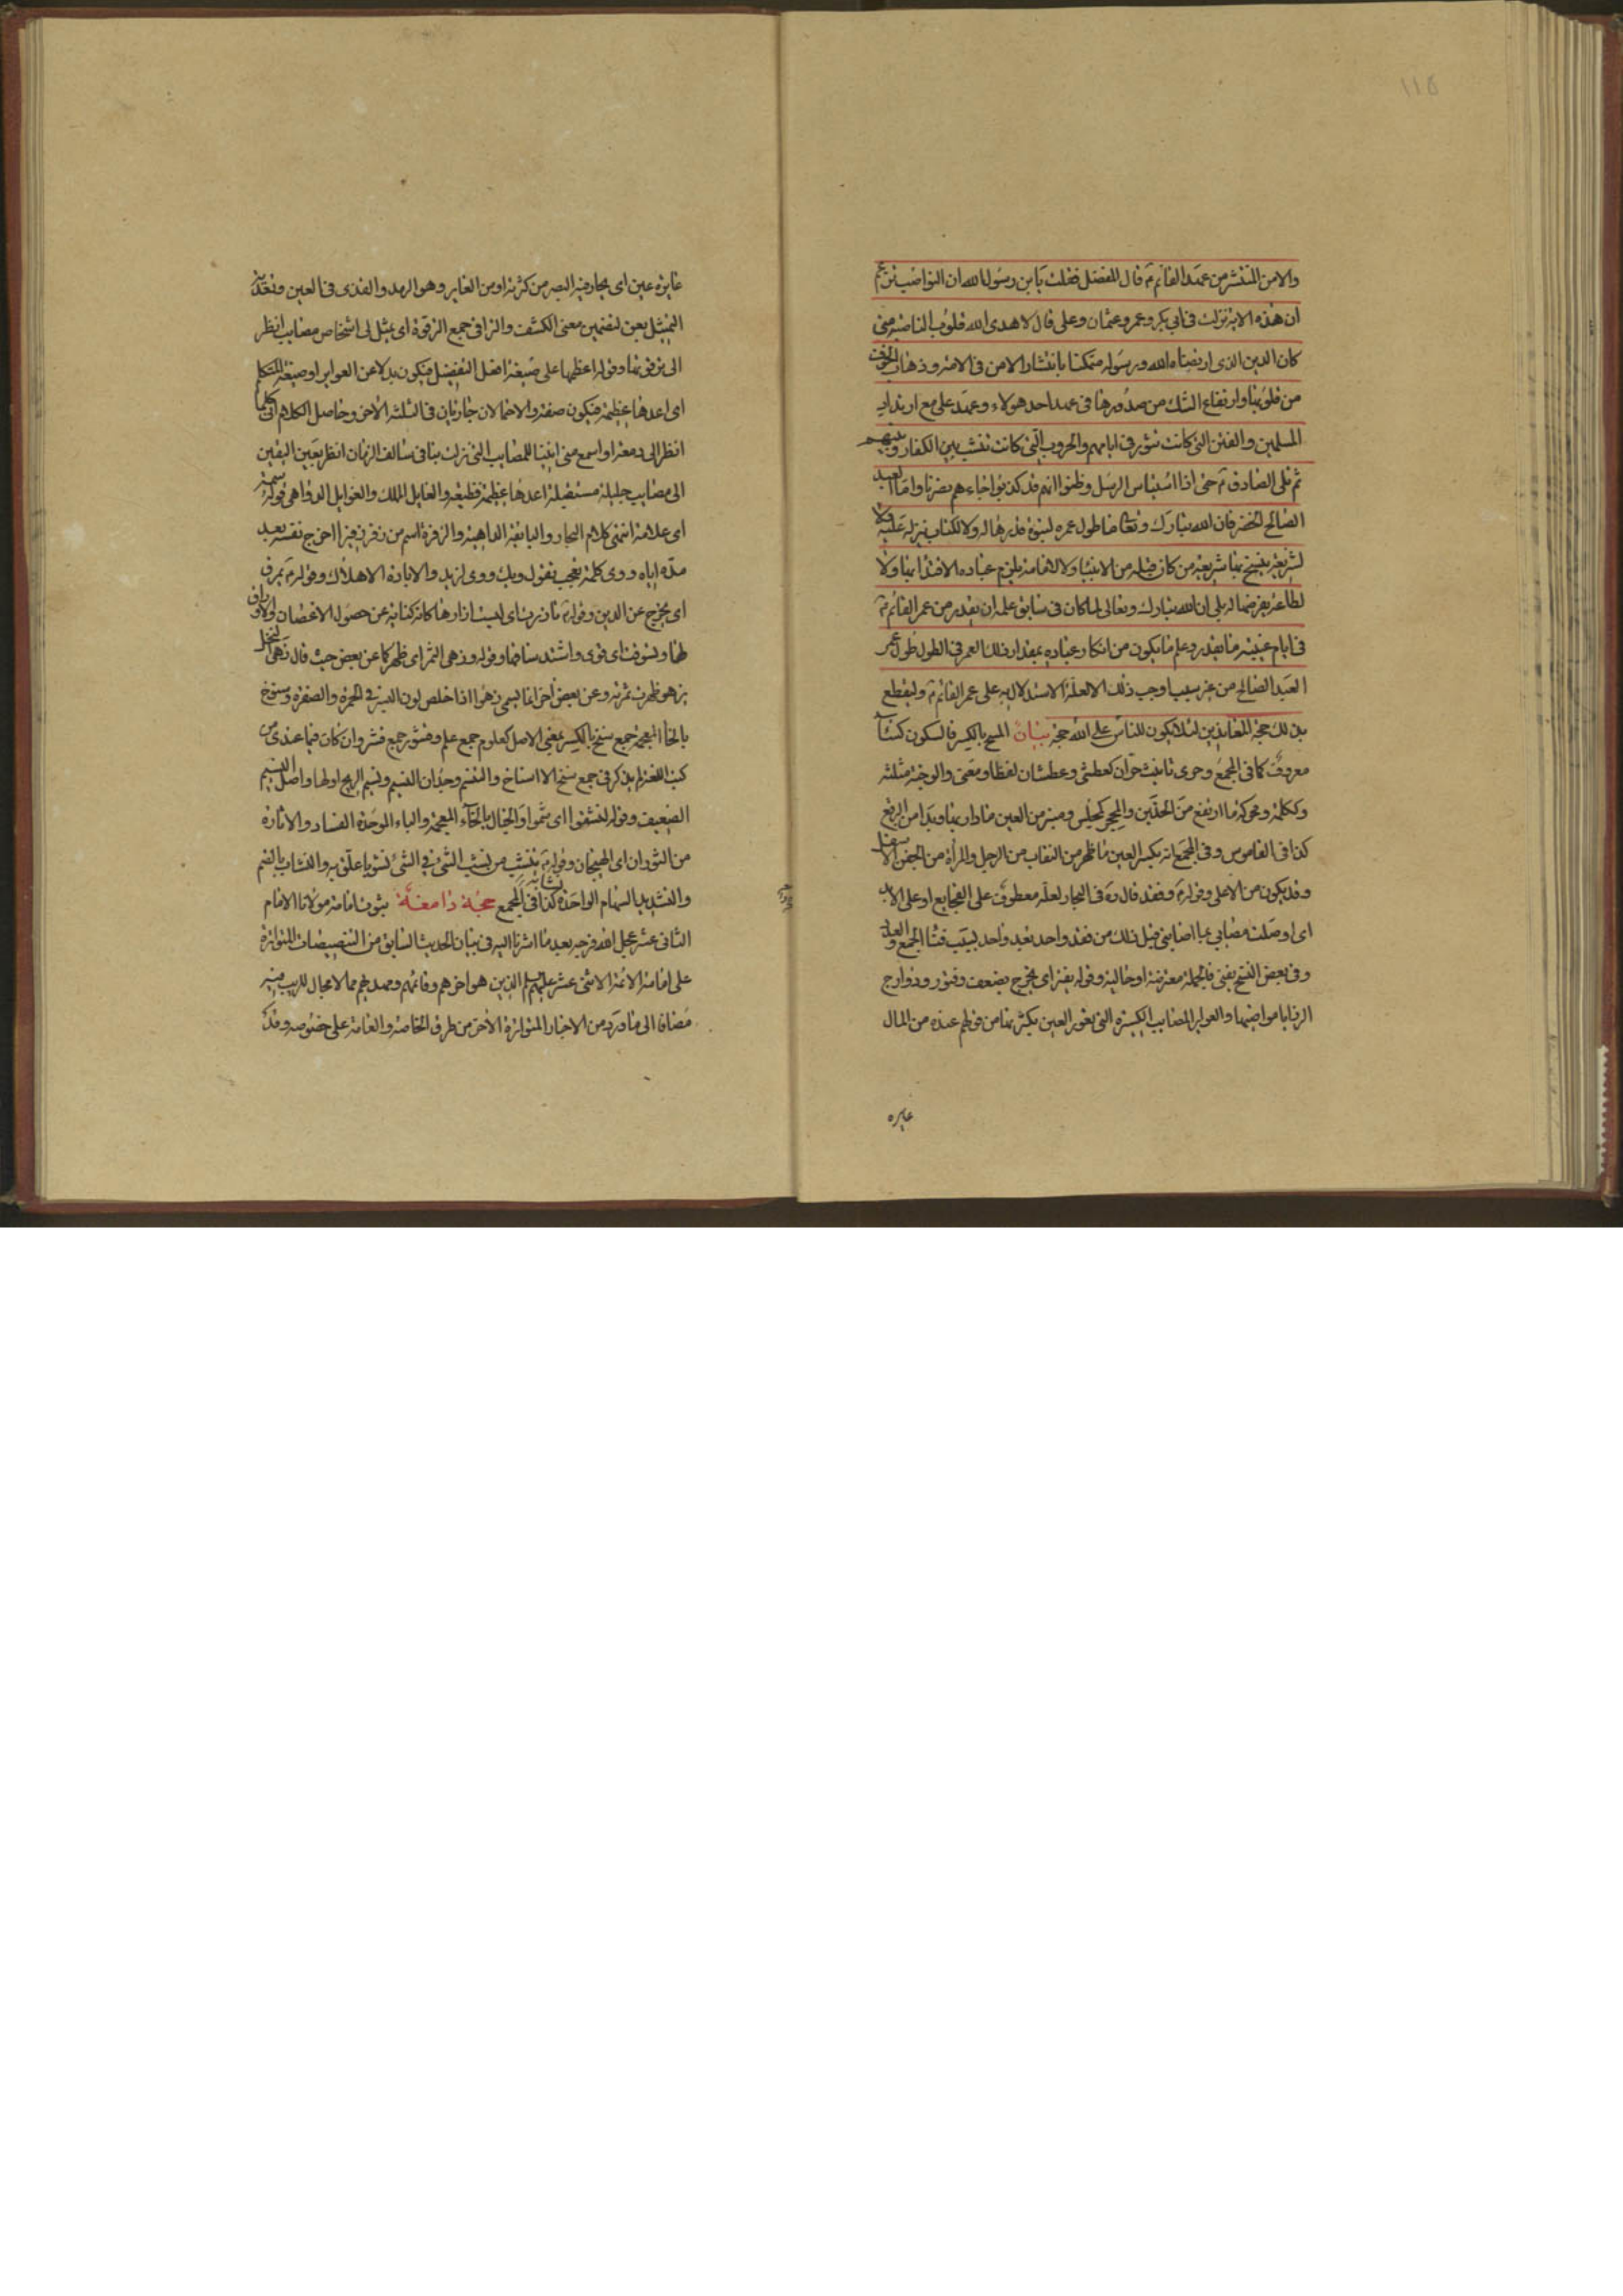 ١١٥
والامن المنتشر من عهد القائم ع قال المفضل فقلت يابن رسول الله ان النواصب تزعم
ان هذه الاية نزلت في ابي بكر وعمر وعثمان وعلي فقال لا هدى الله قلوب الناصبة متى
كان الدين الذي ارتضاه الله ورسوله متمكنا بانتشار الامن في الامة وذهاب الخوف
من قلوبها وارتفاع الشك من صدورها في عهد احد هولاء وعهد علي مع ارتداد
المسلمين والفتن التي كانت تثور في ايامهم والحروب التي كانت تنشب بين الكفار وبينهم
ثم تلى الصادق ع حتى اذا استياس الرسل وظنوا انهم قد كذبوا جاءهم نصرنا واما العبد
الصالح الخضر فان الله تبارك وتعالى ما طول عمره لنبوة قدرها له ولا لكتاب ينزله عليه ولا
لشريعة ينسخ بها شريعة من كان قبله من الانبيا ولا لامامة يلزم عباده الاقتدا بها ولا
لطاعة يفرضها له بلى ان الله تبارك وتعالى لما كان في سابق علمه ان يقدر من عمر القائم ع
في ايام غيبته ما يقدر وعلم ما يكون من انكار عباده بمقدار ذلك العمر في الطول طول عمر
العبد الصالح من غير سبب اوجب ذلك الا لعلة الاستدلال به على عمر القائم ع وليقطع
بذلك حجة المعاندين لئلا يكون للناس على الله حجة بيان المسح بالكسر فالسكون كساء
معروف كما في المجمع وحرى تانيث حران كعطشى وعطشان لفظا ومعنى والوجنة مثلثة
وككلمة ومحركة ما ارتفع من الخدين والمحجر كمجلس ومنبر من العين ما دار بها وبدا من البرقع
كذا في القاموس وفي المجمع انه بكسر العين ما ظهر من النقاب من الرجل والمراة من الجفن الاسفل
وقد يكون من الاعلى وقوله ع وفقد قال ره في البحار لعله معطوف على الفجايع او على الابد
اي اوصلت مصابي بما اصابني قبل ذلك من فقد واحد بعد واحد بسبب فناء الجمع والعدد
وفي بعض النسخ يفني فالجملة معترضة او حالية وقوله يفتر اي يخرج بضعف وفتور ودوارج
الرزايا مواضيها والعواير المصايب الكثيرة التي تعور العين بكثرتها من قولهم عنده من المال
عايره
عايرة عين اي يحار فيه البصر من كثرته او من العاير وهو الرمد والقذى في العين وتعدية
التمثيل بعن لتضمين معنى الكشف والتراقي جمع الترقوة اي يمثل لي اشخاص مصايب انظر
الى ترقوتها وقوله اعظمها على صيغة افعل التفضيل فيكون بدلا عن العواير او صيغة المتكلم
اي اعدها عظيمة فيكون صفة والاحتمالان جاريان في الثلثة الاخر وحاصل الكلام اني كلما
انظر الى دمعة او اسمع مني انينا للمصايب التي نزلت بنا في سالف الزمان انظر بعين اليقين
الى مصايب جليلة مستقبلة اعدها عظيمة فظيعة والغايل المهلك والغوايل الدواهي قوله سمة
اي علامة انتهى كلام البحار والبائقة الداهية والزفرة اسم من زفر زفيرا اخرج نفسه بعد
مده اياه ووى كلمة تعجب تقول ويك ووى لزيد والابادة الاهلاك وقوله ع يمرق
اي يخرج عن الدين وقوله ع تازرت اي لبست ازارها كانه كناية عن حصول الاغصان والاوراق
لها وبسوقت اي قوى واشتد ساقها وقوله وزهى الثمر اي ظهر كما عن بعض حيث قال زهى النخل
يزهو ظهرت ثمرته وعن بعض اخر انما يسمى زهوا اذا خلص لون البسرة في الحمرة والصفرة وسنوخ
بالخا المعجمة جمع سنخ بالكسر بمعنى الاصل كعلوم جمع علم وقشور جمع قشر وان كان فيما عندي من
كتب اللغة لم يذكر في جمع سنخ الا اسناخ والتنسم وجدان النسيم ونسيم الريح اولها واصل النسيم
الضعيف وقوله لتنشقوا اي شموا والخبال بالخاء المعجمة والباء الموحدة الفساد والاثارة
من الثوران اي الهيجان وقوله ع ينتشب من نشب الشيء في الشيء نشوبا علق به والنشاب بالضم
والتشديد السهام الواحدة نشابة كذا في المجمع حجة دامغة ثبوت امامة مولانا الامام
الثاني عشر عجل الله فرجه بعد ما اشرنا اليه في بيان الحديث السابق من التنصيصات المتواترة
على امامة الائمة الاثنى عشر عليهم السلم الذين هو اخرهم وقائمهم ومهديهم مما لا مجال للريب فيه
مضافا الى ما ورد من الاخبار المتواترة الاخر من طرق الخاصة والعامة على خصوصه وقد